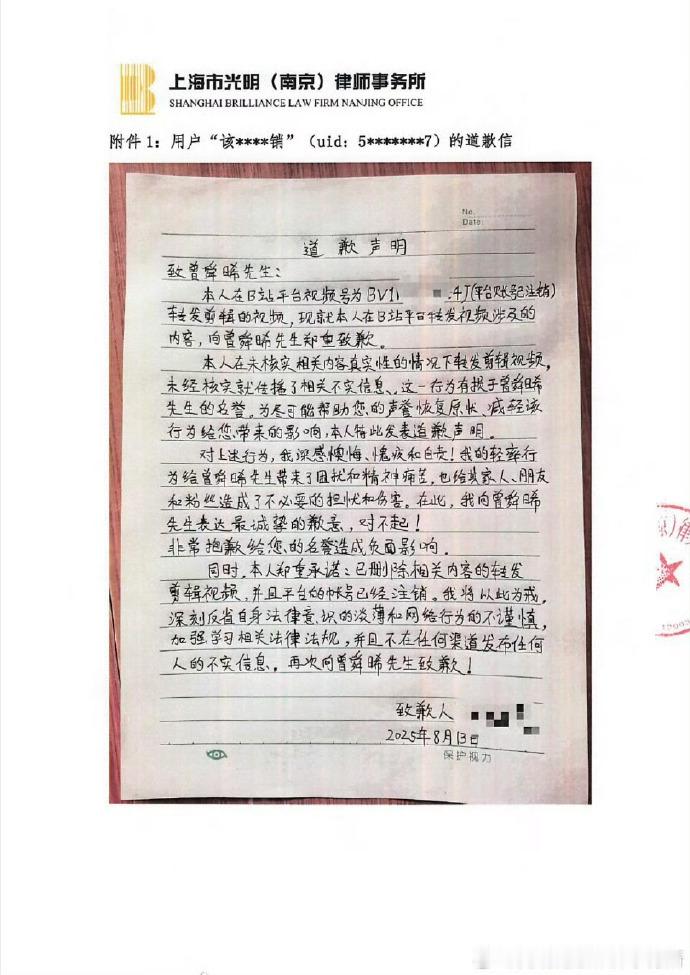 上海市光明（南京）律师事务所
SHANGHAI BRILLIANCE LAW FIRM NANJING OFFICE
附件1：用户“该****销”（uid：5*******7）的道歉信
No.
Date:
道歉声明
致曾舜晞先生：
本人在B站平台视频号为BV1 4J(平台账号已注销)
转发剪辑的视频，现就本人在B站平台转发视频涉及的
内容，向曾舜晞先生郑重致歉。
本人在未核实相关内容真实性的情况下转发剪辑视频，
未经核实就传播了相关不实信息、这一行为有损于曾舜晞
先生的名誉，为尽可能帮助您的声誉恢复原状、减轻该
行为给您带来的影响，本人特此发表道歉声明。
对上述行为，我深感懊悔、愧疚和自责！我的轻率行
为给曾舜晞先生带来了困扰和精神痛苦，也给其家人、朋友
和粉丝造成了不必要的担忧和伤害。在此，我向曾舜晞
先生表达最诚挚的歉意，对不起！
非常抱歉给您的名誉造成负面影响。
同时，本人郑重承诺：已删除相关内容的转发
剪辑视频，并且平台的帐号已经注销。我将以此为戒，
深刻反省自身法律意识的淡薄和网络行为的不谨慎，
加强学习相关法律法规，并且不在任何渠道发布任何
人的不实信息。再次向曾舜晞先生致歉！
致歉人
2025年8月13日
保护视力